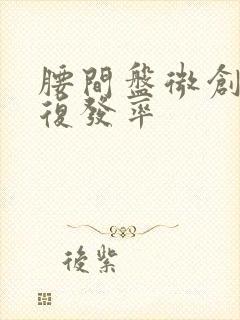 腰間盤微創
復發率
後紫